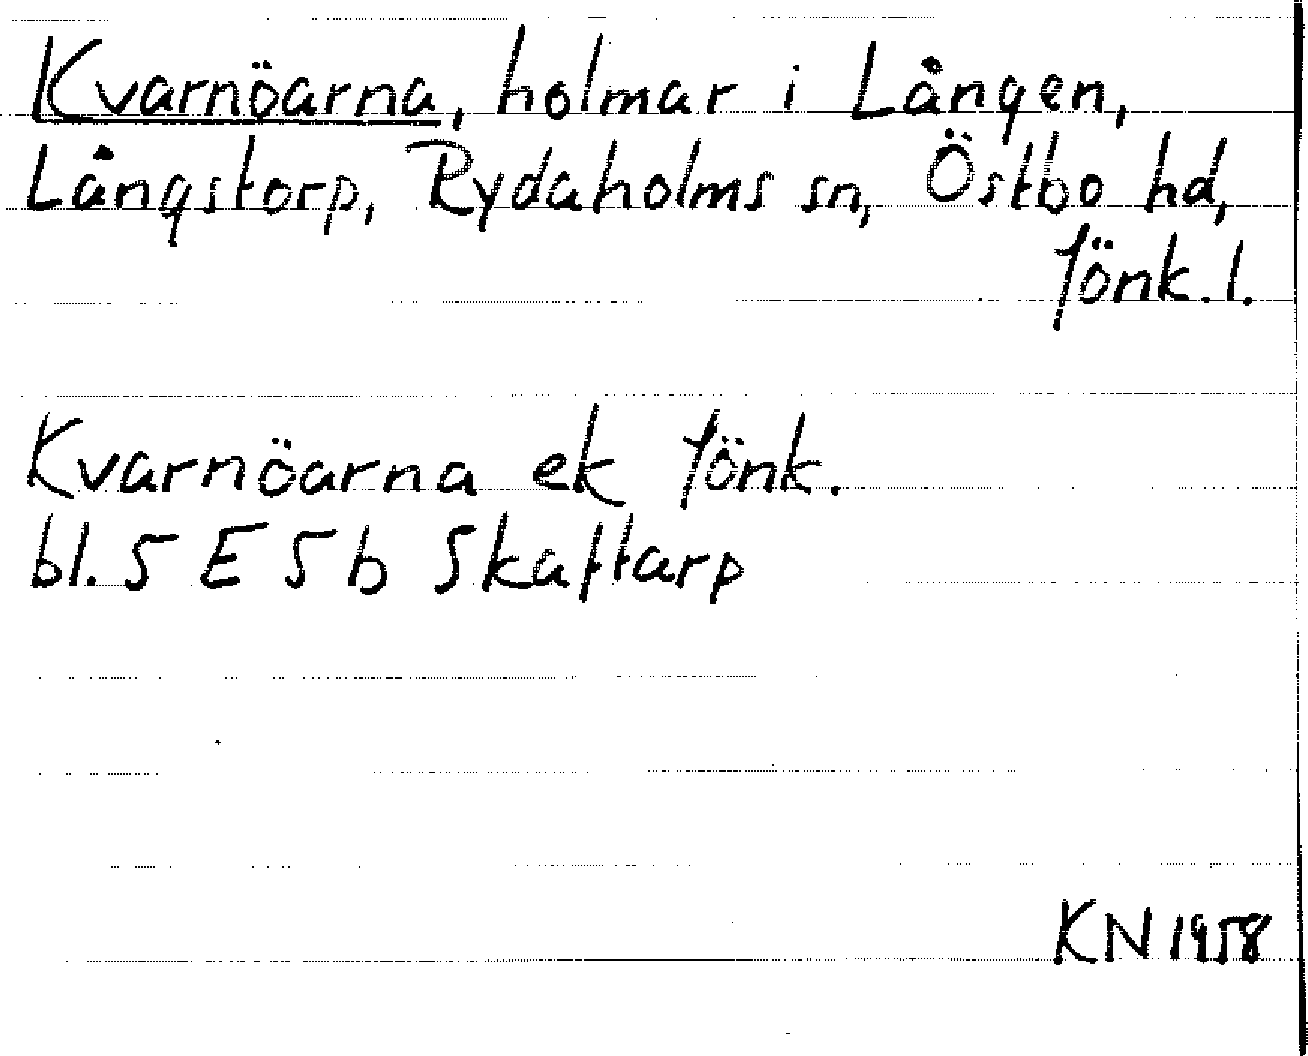 Kvarnöarna, holmar i Lången,
Långstorp, Rydaholms sn, Östbo hd,
Jönk. l.
Kvarnöarna ek Jönk.
bl. 5 E 5 b Skaftarp
KN 1958